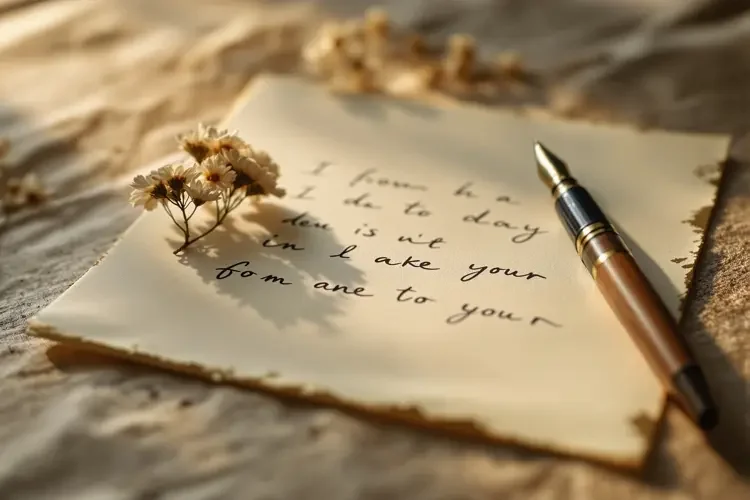 I from h a
I du to day
deu is u't
in l ake your
fom ane to your